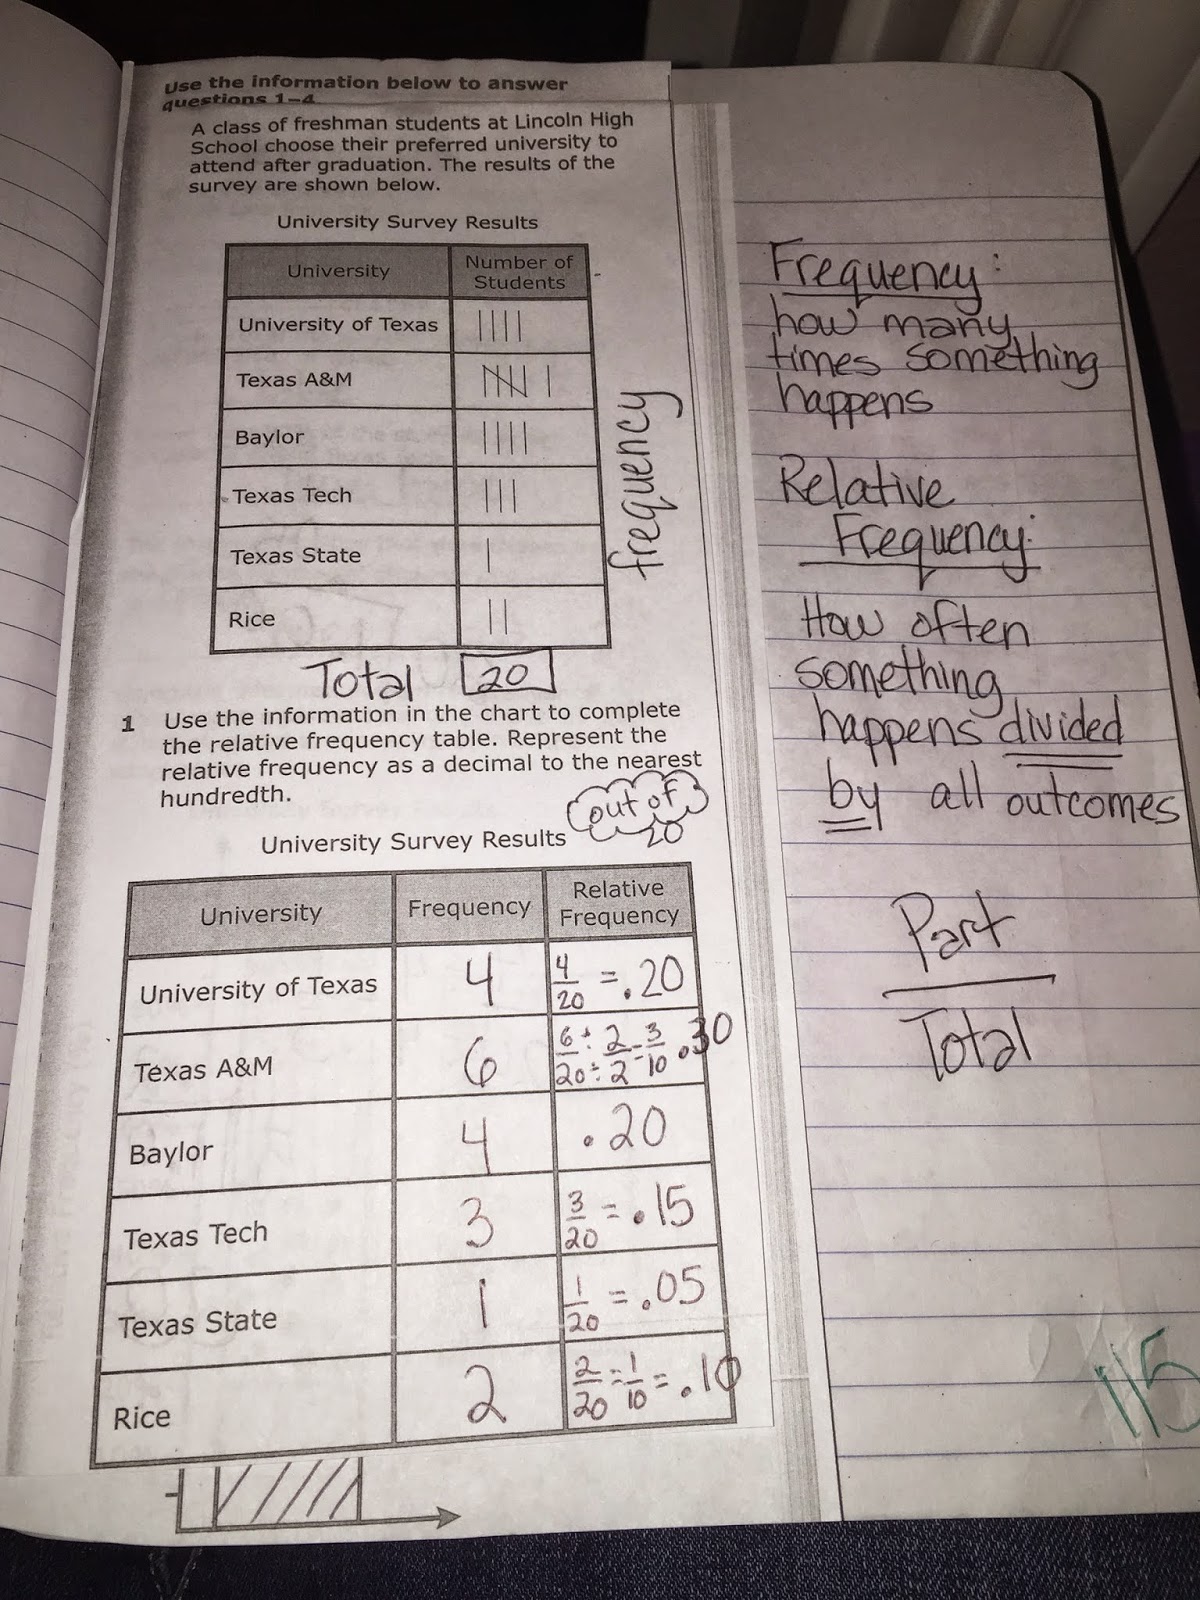 Use the information below to answer
questions 1–4
A class of freshman students at Lincoln High
School choose their preferred university to
attend after graduation. The results of the
survey are shown below.
University Survey Results
University Number of Students
University of Texas ||||
Texas A&M |||| |
Baylor ||||
Texas Tech |||
Texas State |
Rice ||
frequency
Total 20
1 Use the information in the chart to complete
the relative frequency table. Represent the
relative frequency as a decimal to the nearest
hundredth.
out of
20
University Survey Results
University Frequency Relative Frequency
University of Texas 4 4/20 = .20
Texas A&M 6 6/20 ÷ 2/2 = 3/10 .30
Baylor 4 .20
Texas Tech 3 3/20 = .15
Texas State 1 1/20 = .05
Rice 2 2/20 = 1/10 = .10
Frequency:
how many
times something
happens
Relative
Frequency:
How often
something
happens divided
by all outcomes
Part
Total
115